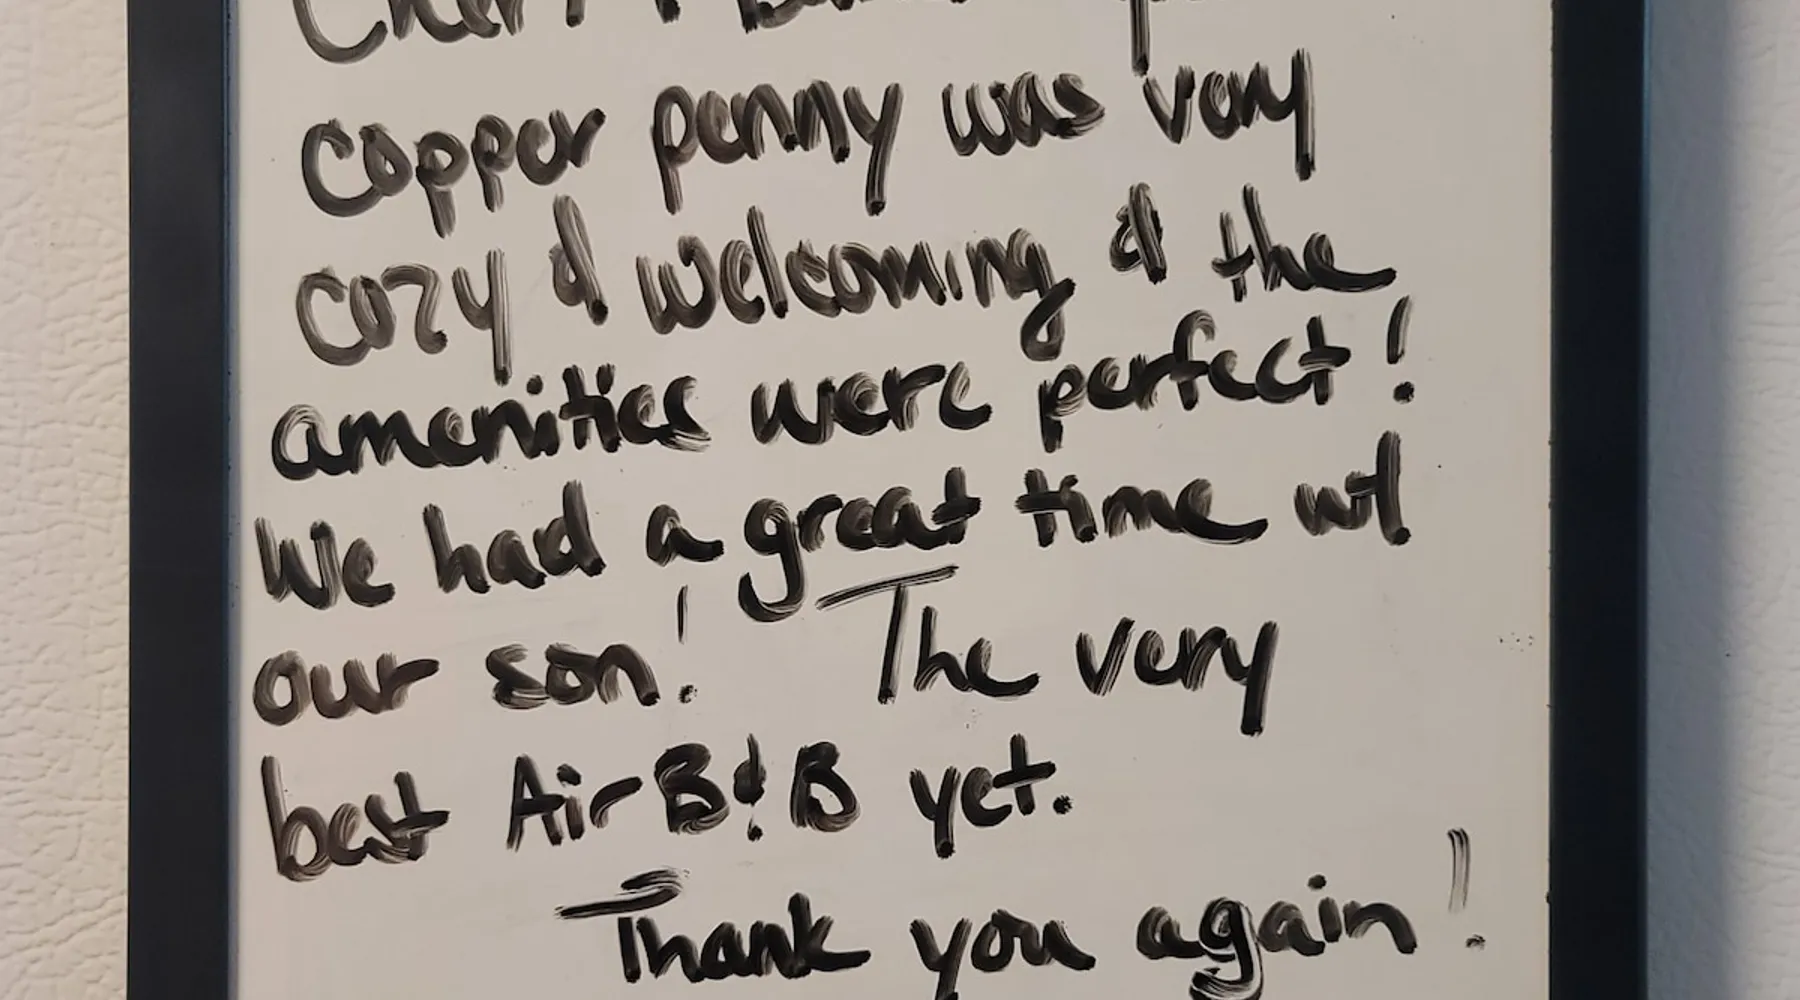 copper penny was very
cozy & welcoming & the
amenities were perfect!
We had a great time w/
our son! The very
best Air B&B yet.
Thank you again!